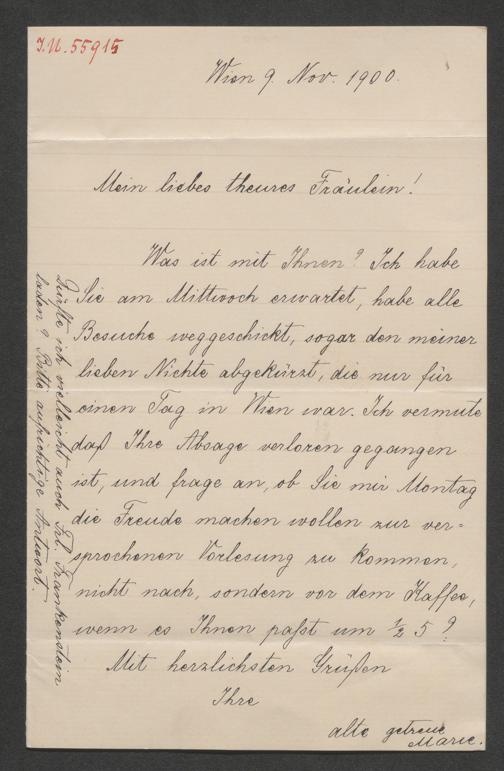 J.N. 55915
Wien 9. Nov. 1900.
Mein liebes theures Fräulein!
Was ist mit Ihnen? Ich habe
Sie am Mittwoch erwartet, habe alle
Besuche weggeschickt, sogar den meiner
lieben Nichte abgekürzt, die nur für
einen Tag in Wien war. Ich vermute
daß Ihre Absage verloren gegangen
ist, und frage an, ob Sie mir Montag
die Freude machen wollen zur ver=
sprochenen Vorlesung zu kommen,
nicht nach, sondern vor dem Kaffee,
wenn es Ihnen paßt um ½ 5?
Mit herzlichsten Grüßen
Ihre
alte getreue
Marie.
Dürfte ich vielleicht auch Frl. Frankenstein
laden? Bitte aufrichtige Antwort.